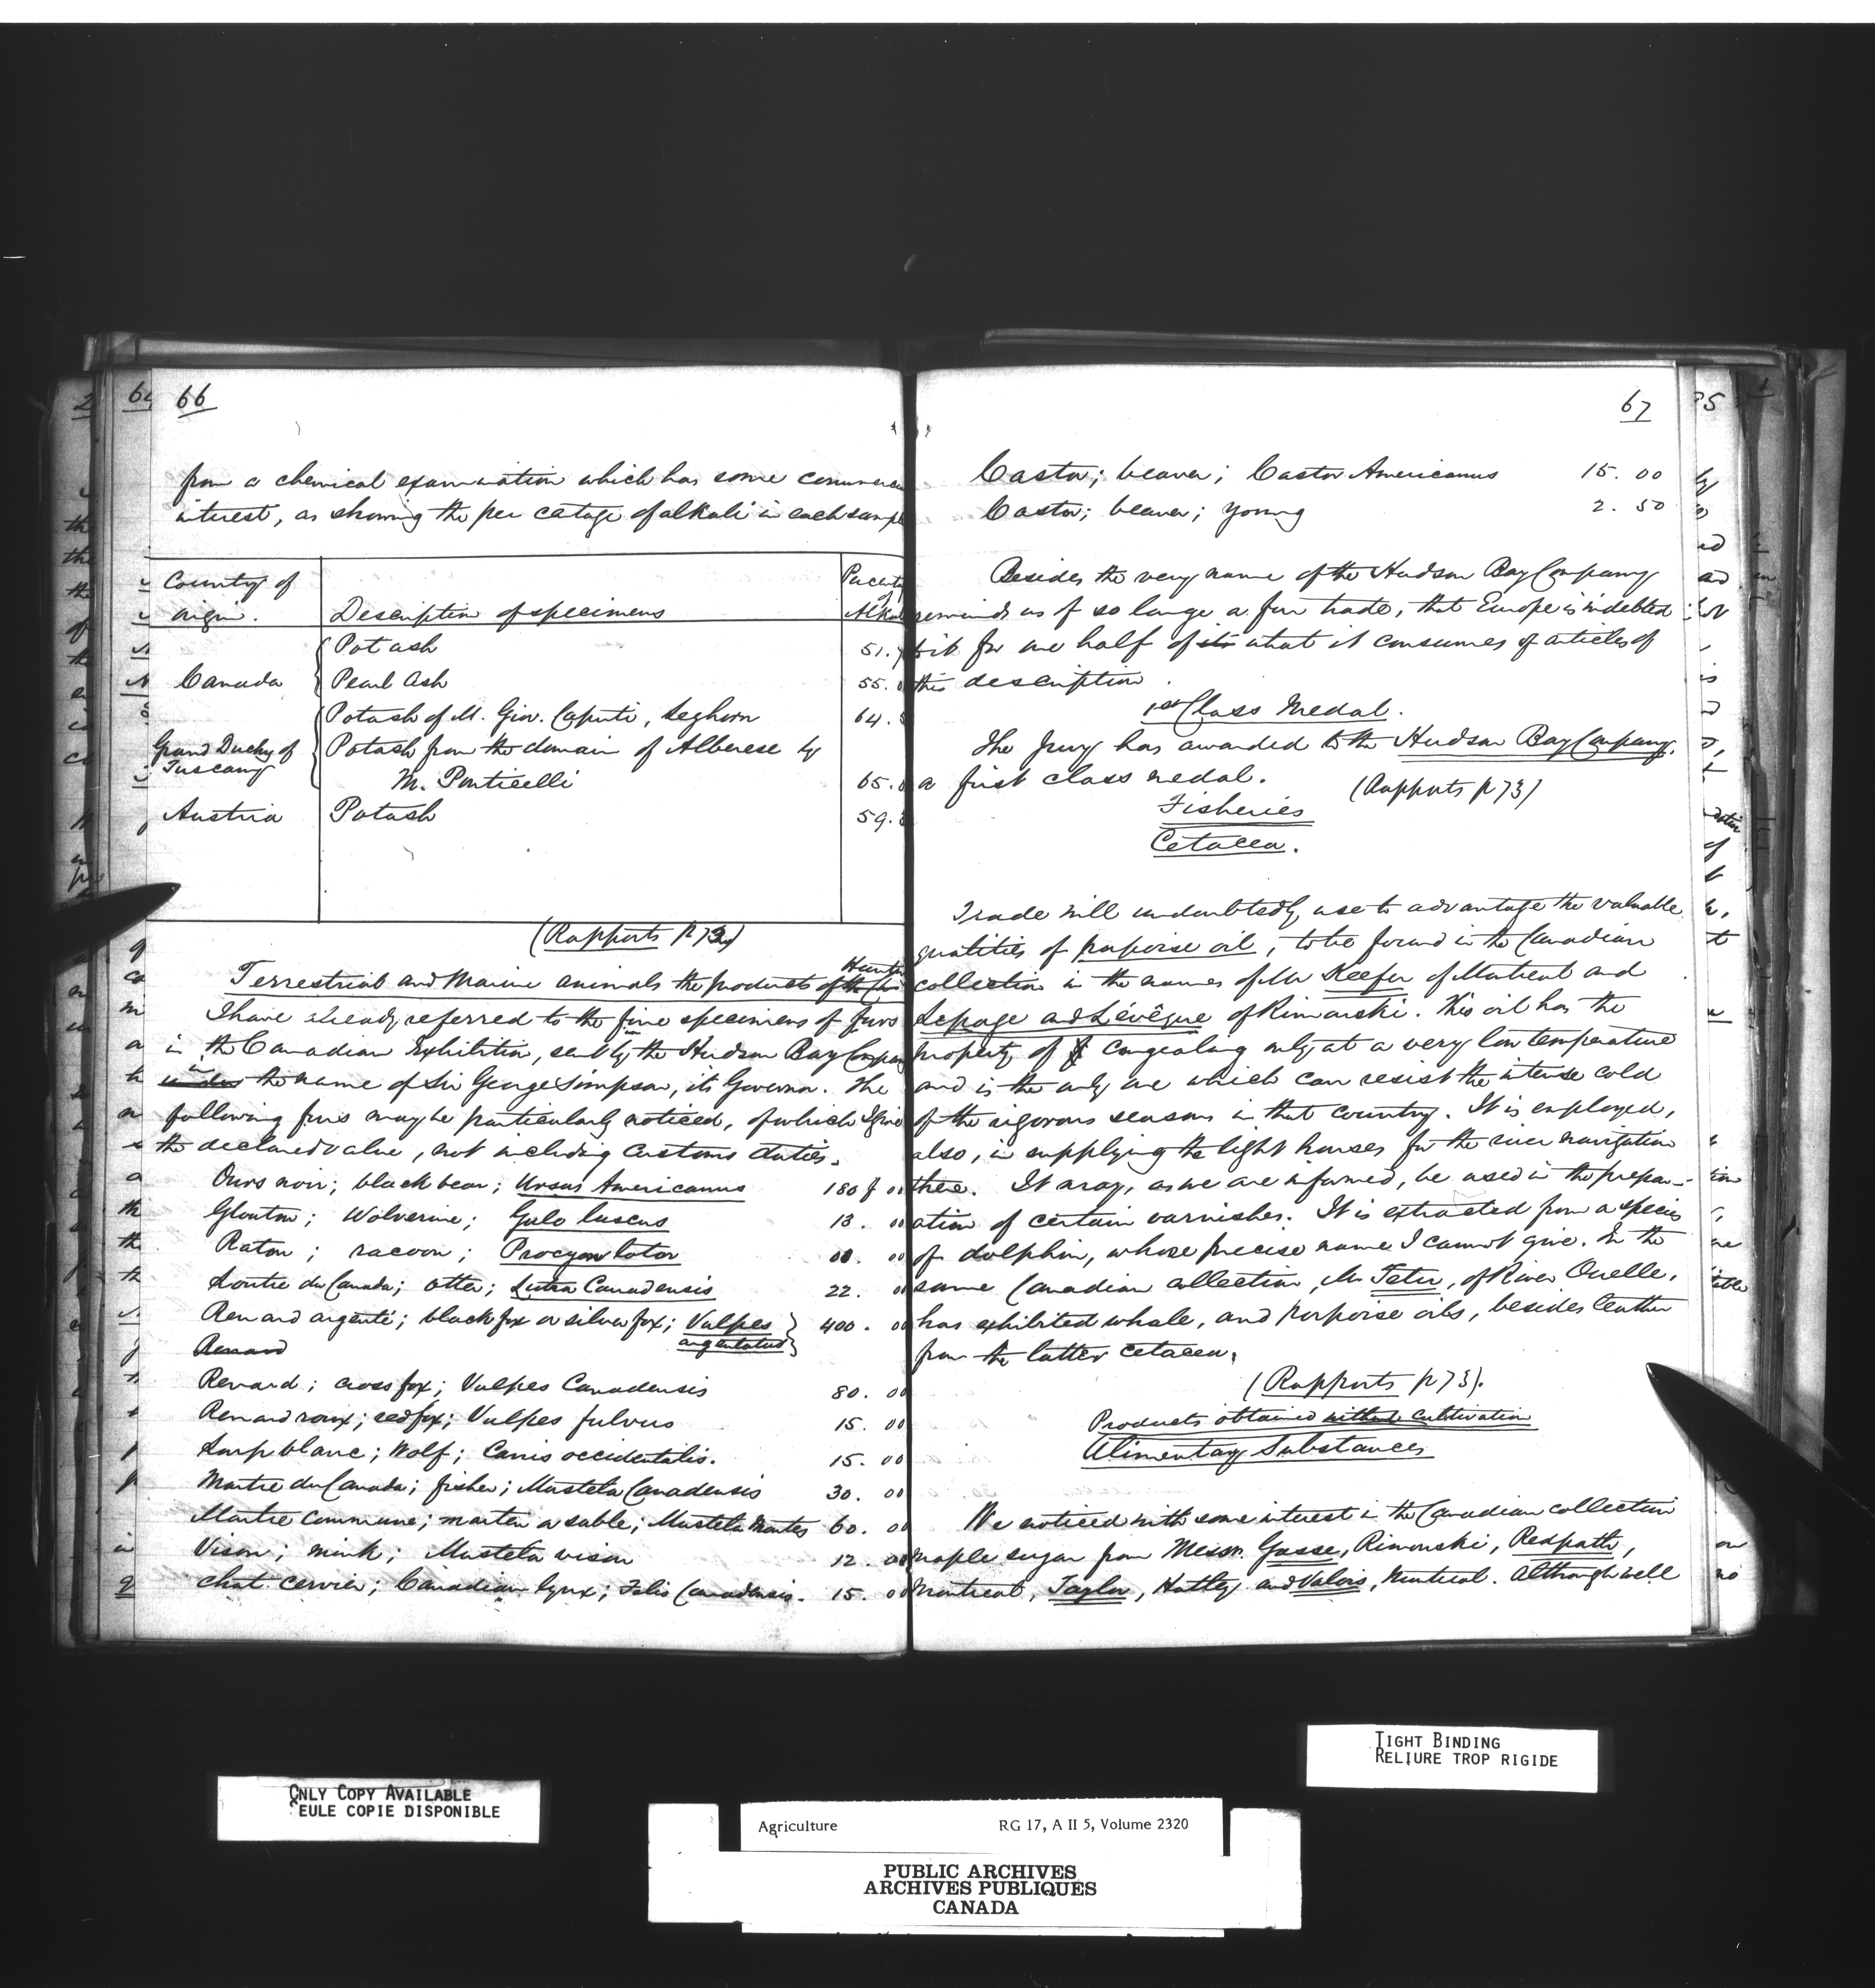 66
from a chemical examination which has some commercia
interest, as showing the per centage of alkali in each sampl
Country of
origin.
Description of specimens
Percenta
of
Alkal
Canada
Potash
51.
Pearl Ash
55.
Grand Duchy of
Tuscany
Potash of M. Giov. Caputi, Leghorn
64.
Potash from the domain of Alberese by
M. Ponticelli
65.
Austria
Potash
59.
(Rapports p 72)
Hunt
Terrestrial and Marine animals the products of the
I have already referred to the fine specimens of furs
in the Canadian Exhibition, sent by the Hudson Bay Compan
in
under the name of Sir George Simpson, its Governor. The
following furs may be particularly noticed, of which I give
the declared value, not including Customs duties.
Ours noir; black bear; Ursus Americanus 180 f 00
Glouton; Wolverine; Gulo luscus 13. 00
Raton; racoon; Procyon lotor 00. 00
Loutre du Canada; otter; Lutra Canadensis 22. 00
Renard argenté; black fox or silver fox; Vulpes 400. 00
argentatus
Renard
Renard; cross fox; Vulpes Canadensis 80. 00
Renard roux; red fox; Vulpes fulvus 15. 00
Loup blanc; Wolf; Canis occidentalis. 15. 00
Martre du Canada; fisher; Mustela Canadensis 30. 00
Martre commune; marten or sable; Mustela Martes 60. 00
Vison; mink; Mustela vison 12. 00
Chat cervier; Canadian lynx; Felis Canadensis. 15. 00
67
Castor; beaver; Castor Americanus 15. 00
Castor; beaver; young 2. 50
Besides the very name of the Hudson Bay Company
reminds us of so large a fur trade, that Europe is indebted
to it for one half of its what it consumes of articles of
this description.
1st Class Medal.
The Jury has awarded to the Hudson Bay Company,
a first class medal.
(Rapports p 73)
Fisheries
Cetacea.
Trade will undoubtedly use to advantage the valuable
qualities of porpoise oil, to be found in the Canadian
collection in the names of Mr Keefer of Montreal and
Lepage and Lévêque of Rimouski. This oil has the
property of congealing only at a very low temperature
and is the only one which can resist the intense cold
of the rigorous seasons in that country. It is employed,
also, in supplying the light houses for the river navigation
there. It may, as we are informed, be used in the prepar-
ation of certain varnishes. It is extracted from a species
of dolphin, whose precise name I cannot give. In the
same Canadian collection, Mr Tetu, of River Ouelle,
has exhibited whale, and porpoise oils, besides leather
from the latter cetacea.
(Rapports p 73).
Products obtained without cultivation
Alimentary Substances
We noticed with some interest in the Canadian collection
maple sugar from Messrs. Gasse, Rimouski, Redpath,
Montreal, Taylor, Hatley and Valois, Montreal. Although well
ONLY COPY AVAILABLE
SEULE COPIE DISPONIBLE
TIGHT BINDING
RELIURE TROP RIGIDE
Agriculture RG 17, A II 5, Volume 2320
PUBLIC ARCHIVES
ARCHIVES PUBLIQUES
CANADA